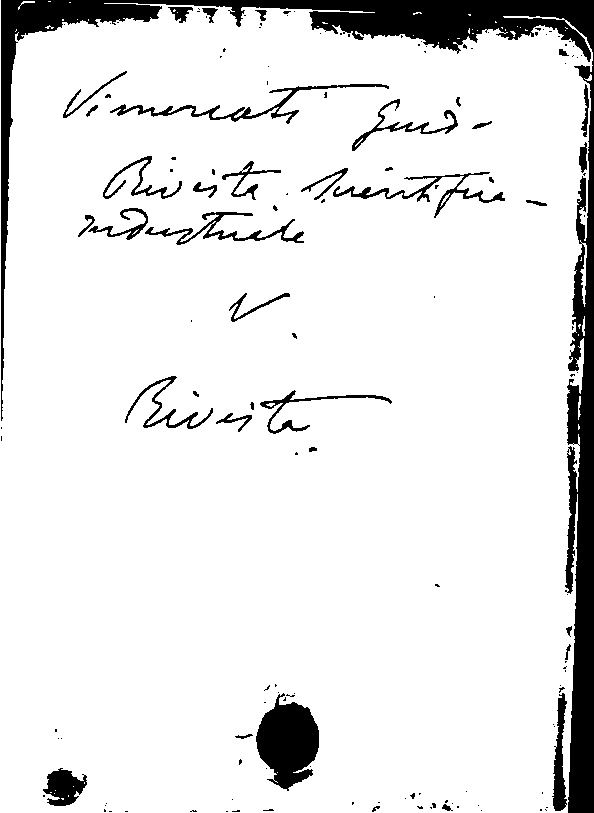 Vimercati Guido -
Rivista Scientifica -
industriale
V.
Rivista